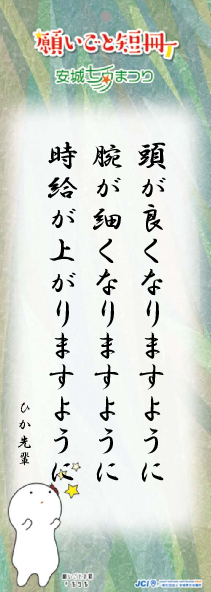 願いごと短冊
安城七夕まつり
頭が良くなりますように
腕が細くなりますように
時給が上がりますように
ひか先輩
JCI